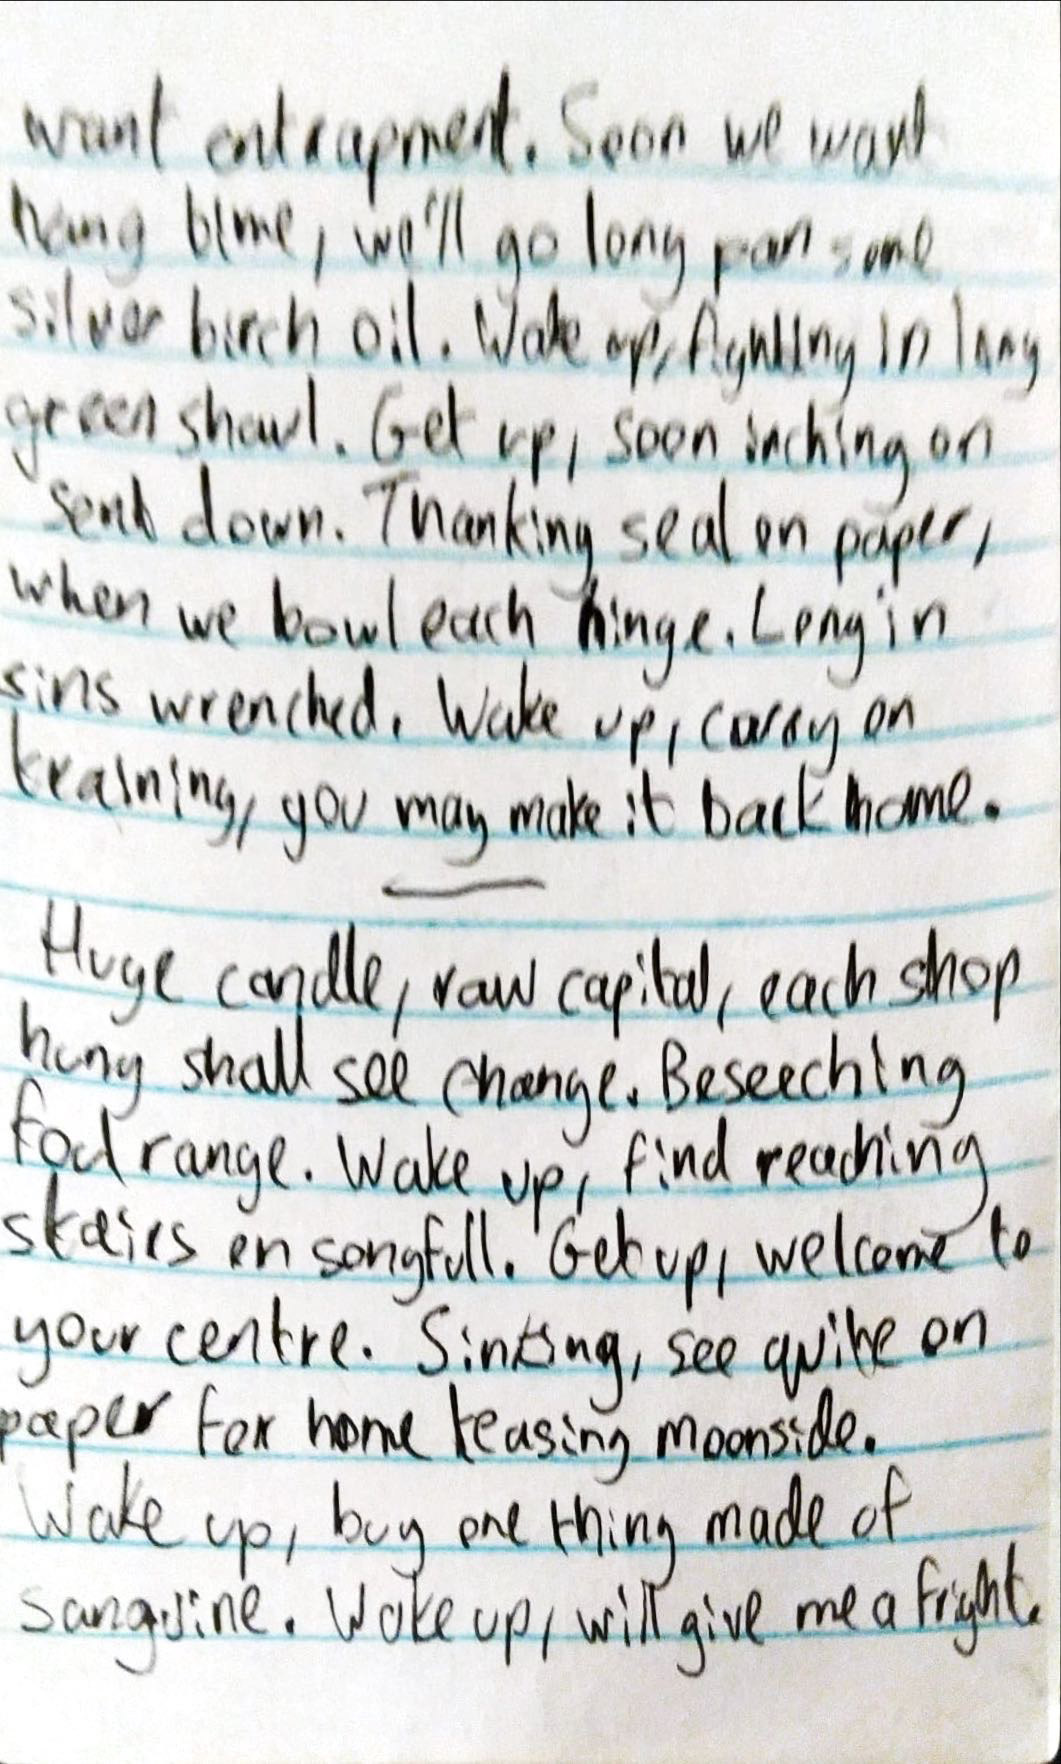 want entrapment. Soon we want
hang time, we'll go long pan some
silver birch oil. Wake up, fighting in long
green shawl. Get up, soon inching on
send down. Thanking seal on paper,
when we bowl each hinge. Long in
sins wrenched. Wake up, carry on
training, you may make it back home.
Huge candle, raw capital, each shop
hung shall see change. Beseeching
range. Wake up, find reaching
stairs on songfull. Get up, welcome to
your centre. see quite on
paper for home teasing moonside.
Wake up, buy one thing made of
sanguine. Wake up, will give me a fright.